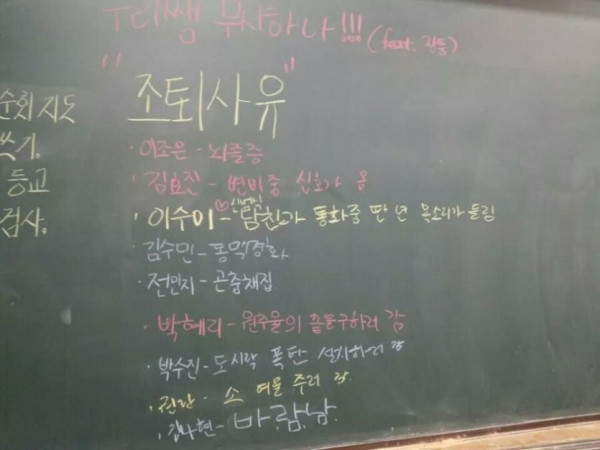 무시하나!!! (feat. 진둥)
"조퇴사유"
순회지도
쓰기.
등교
검사.
·이조은-뇌졸증
·김효진-변비중 신호가 옴
·이수미-♡신병원 남친과 통화중 딴 년 목소리가 들림
·김수민-동맥경화
·전민지-곤충채집
·박혜리-원주율의 끝을구하러 감
·박수진-도시락 폭탄 설치하러 감
·진란-소 여물 주러 감
·김나현-바.람.남.